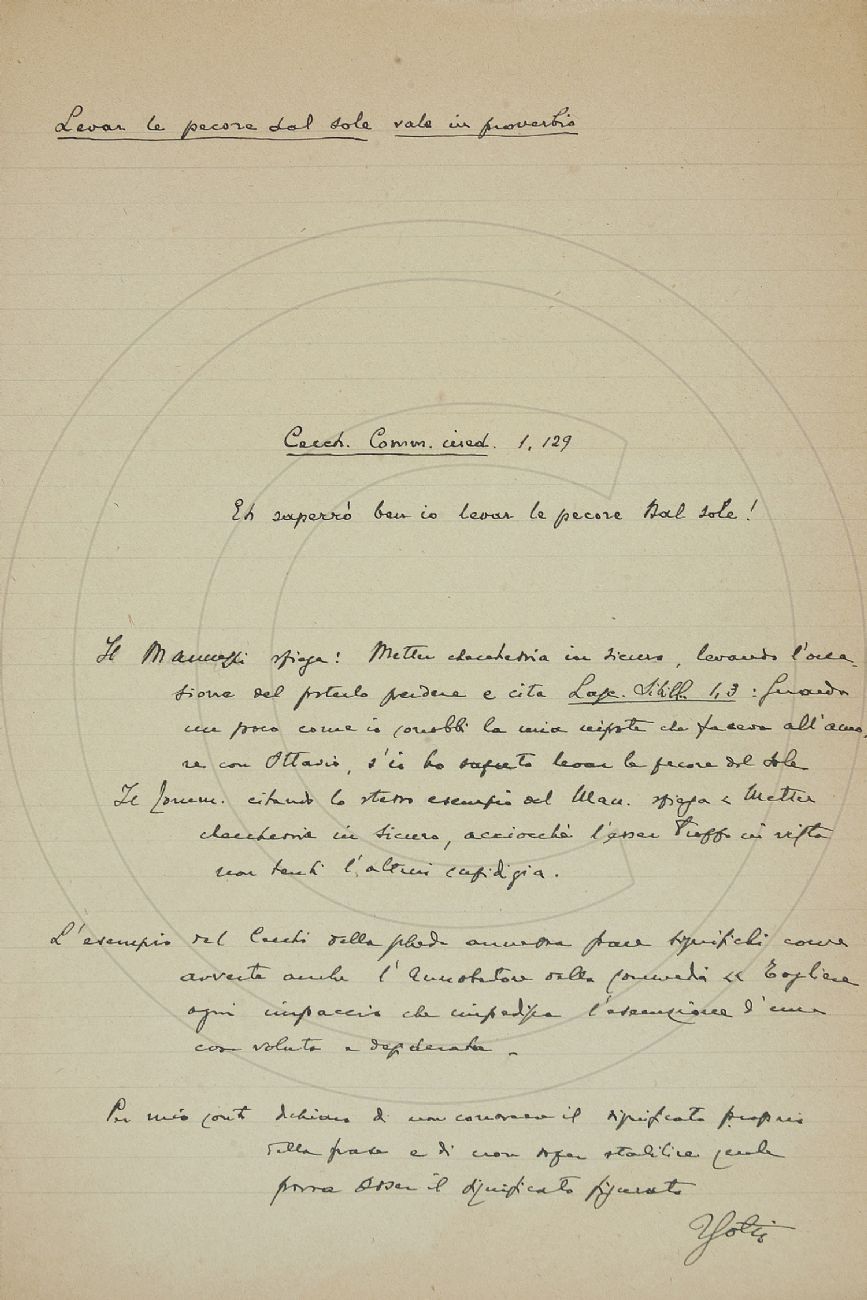 Levar le pecore dal sole vale in proverbio
Cecch. Comm. ined. 1, 129
Eh saperrò ben io levar le pecore dal sole!
Il Mannuzzi spiega: Metter checchessia in sicuro, levando l'occa-
sione del poterlo perdere e cita Lasc. Sibill. 1,3: Guarda
un poco come io conobbi la mia nipote che faceva all'amo-
re con Ottavio, s'io ho saputo levar le pecore dal sole
Il Tomm. citando lo stesso esempio del Man. spiega « Metter
checchessia in sicuro, acciocchè l'esser troppo in vista
non tenti l'altrui cupidigia.
L'esempio del Cecchi della frase significhi come
avverte anche l'Annotatore della commedia « Togliere
ogni impaccio che impedisca l'esecuzione d'una
cosa voluta e desiderata.
Per mio conto dichiaro di non conoscere il significato proprio
della frase e di non saper stabilire quale
possa esser il significato figurato